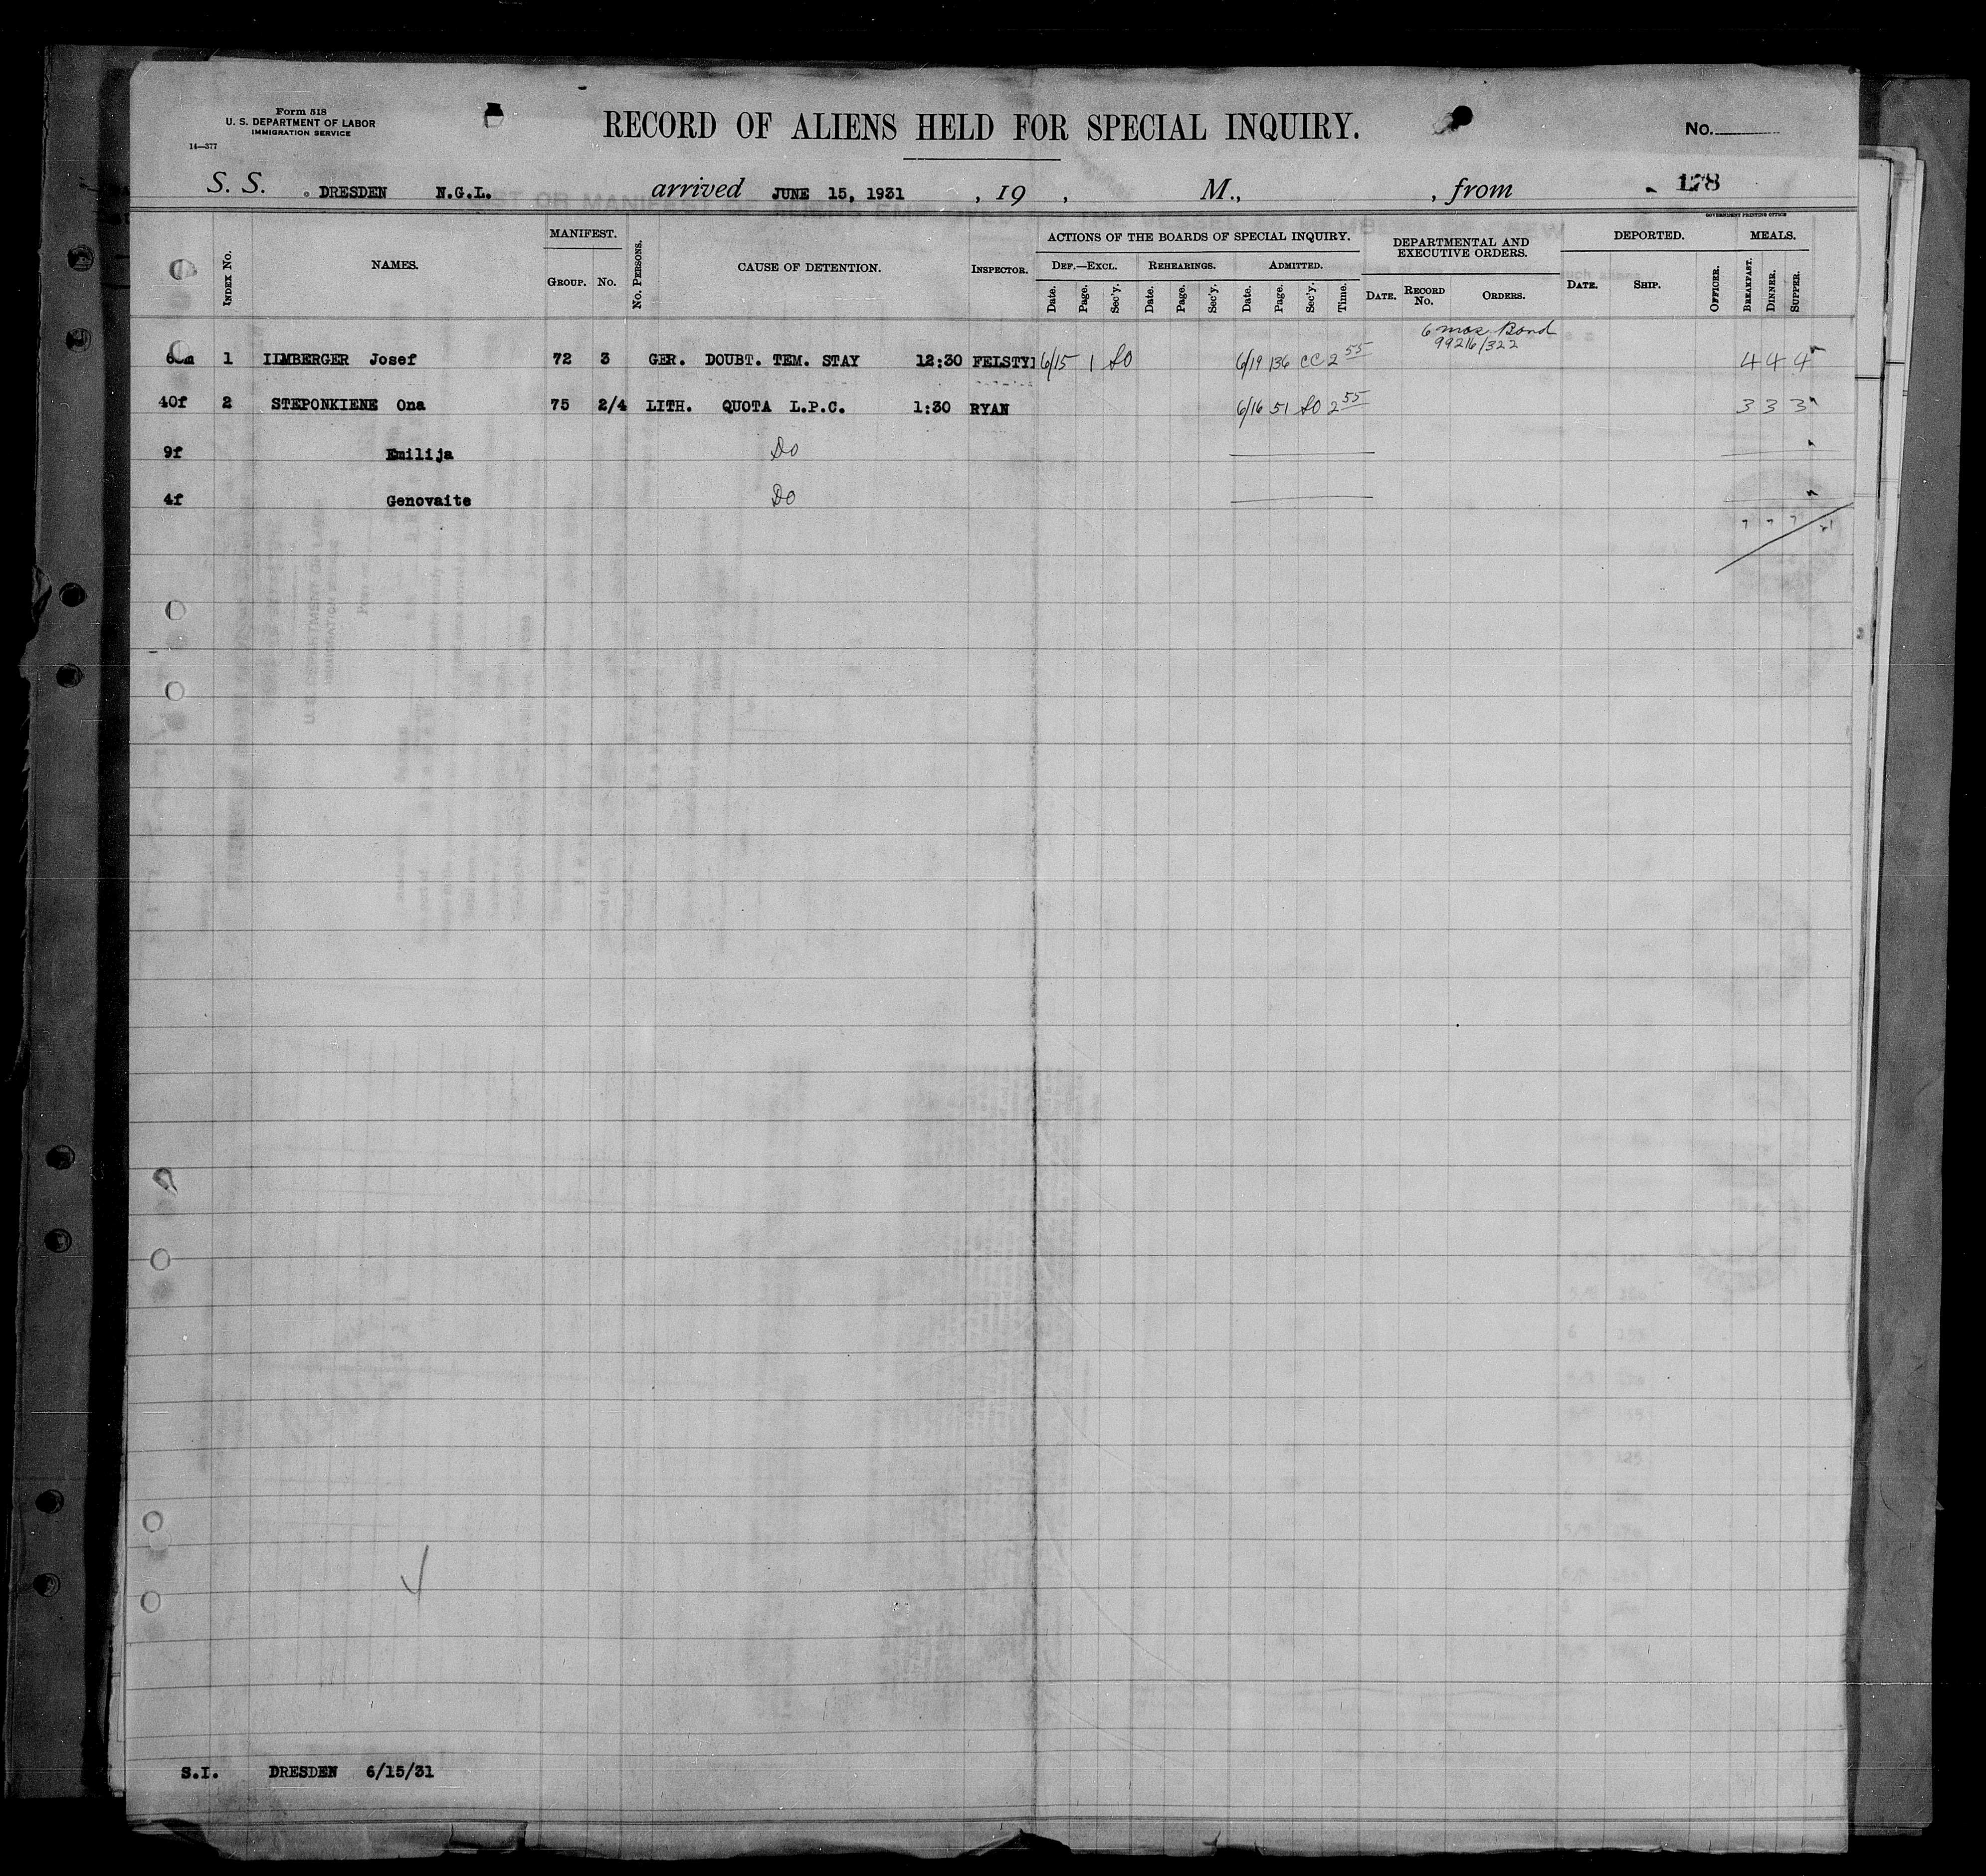 Form 518
U. S. DEPARTMENT OF LABOR
IMMIGRATION SERVICE
14—377
RECORD OF ALIENS HELD FOR SPECIAL INQUIRY.
No.
S. S. DRESDEN N.G.L. arrived JUNE 15, 1931 , 19 , M., , from 178
GOVERNMENT PRINTING OFFICE
INDEX No. NAMES. MANIFEST. GROUP. No. No. PERSONS. CAUSE OF DETENTION. INSPECTOR.
ACTIONS OF THE BOARDS OF SPECIAL INQUIRY. DEF.—EXCL. Date. Page. Sec'y. REHEARINGS. Date. Page. Sec'y. ADMITTED. Date. Page. Sec'y. Time.
DEPARTMENTAL AND EXECUTIVE ORDERS. DATE. RECORD No. ORDERS. DEPORTED. DATE. SHIP. OFFICER. MEALS. BREAKFAST. DINNER. SUPPER.
6 mos Bond
99216/322
1 ILMBERGER Josef 72 3 GER. DOUBT. TEM. STAY 12:30 FELSTY 6/15 1 SO 6/19 136 CC 2 55 4 4 4
40f 2 STEPONKIENE Ona 75 2/4 LITH. QUOTA L.P.C. 1:30 RYAN 6/16 51 SO 2 55 3 3 3
9f Emilija Do
4f Genovaite Do
7 7 7 21
S.I. DRESDEN 6/15/31